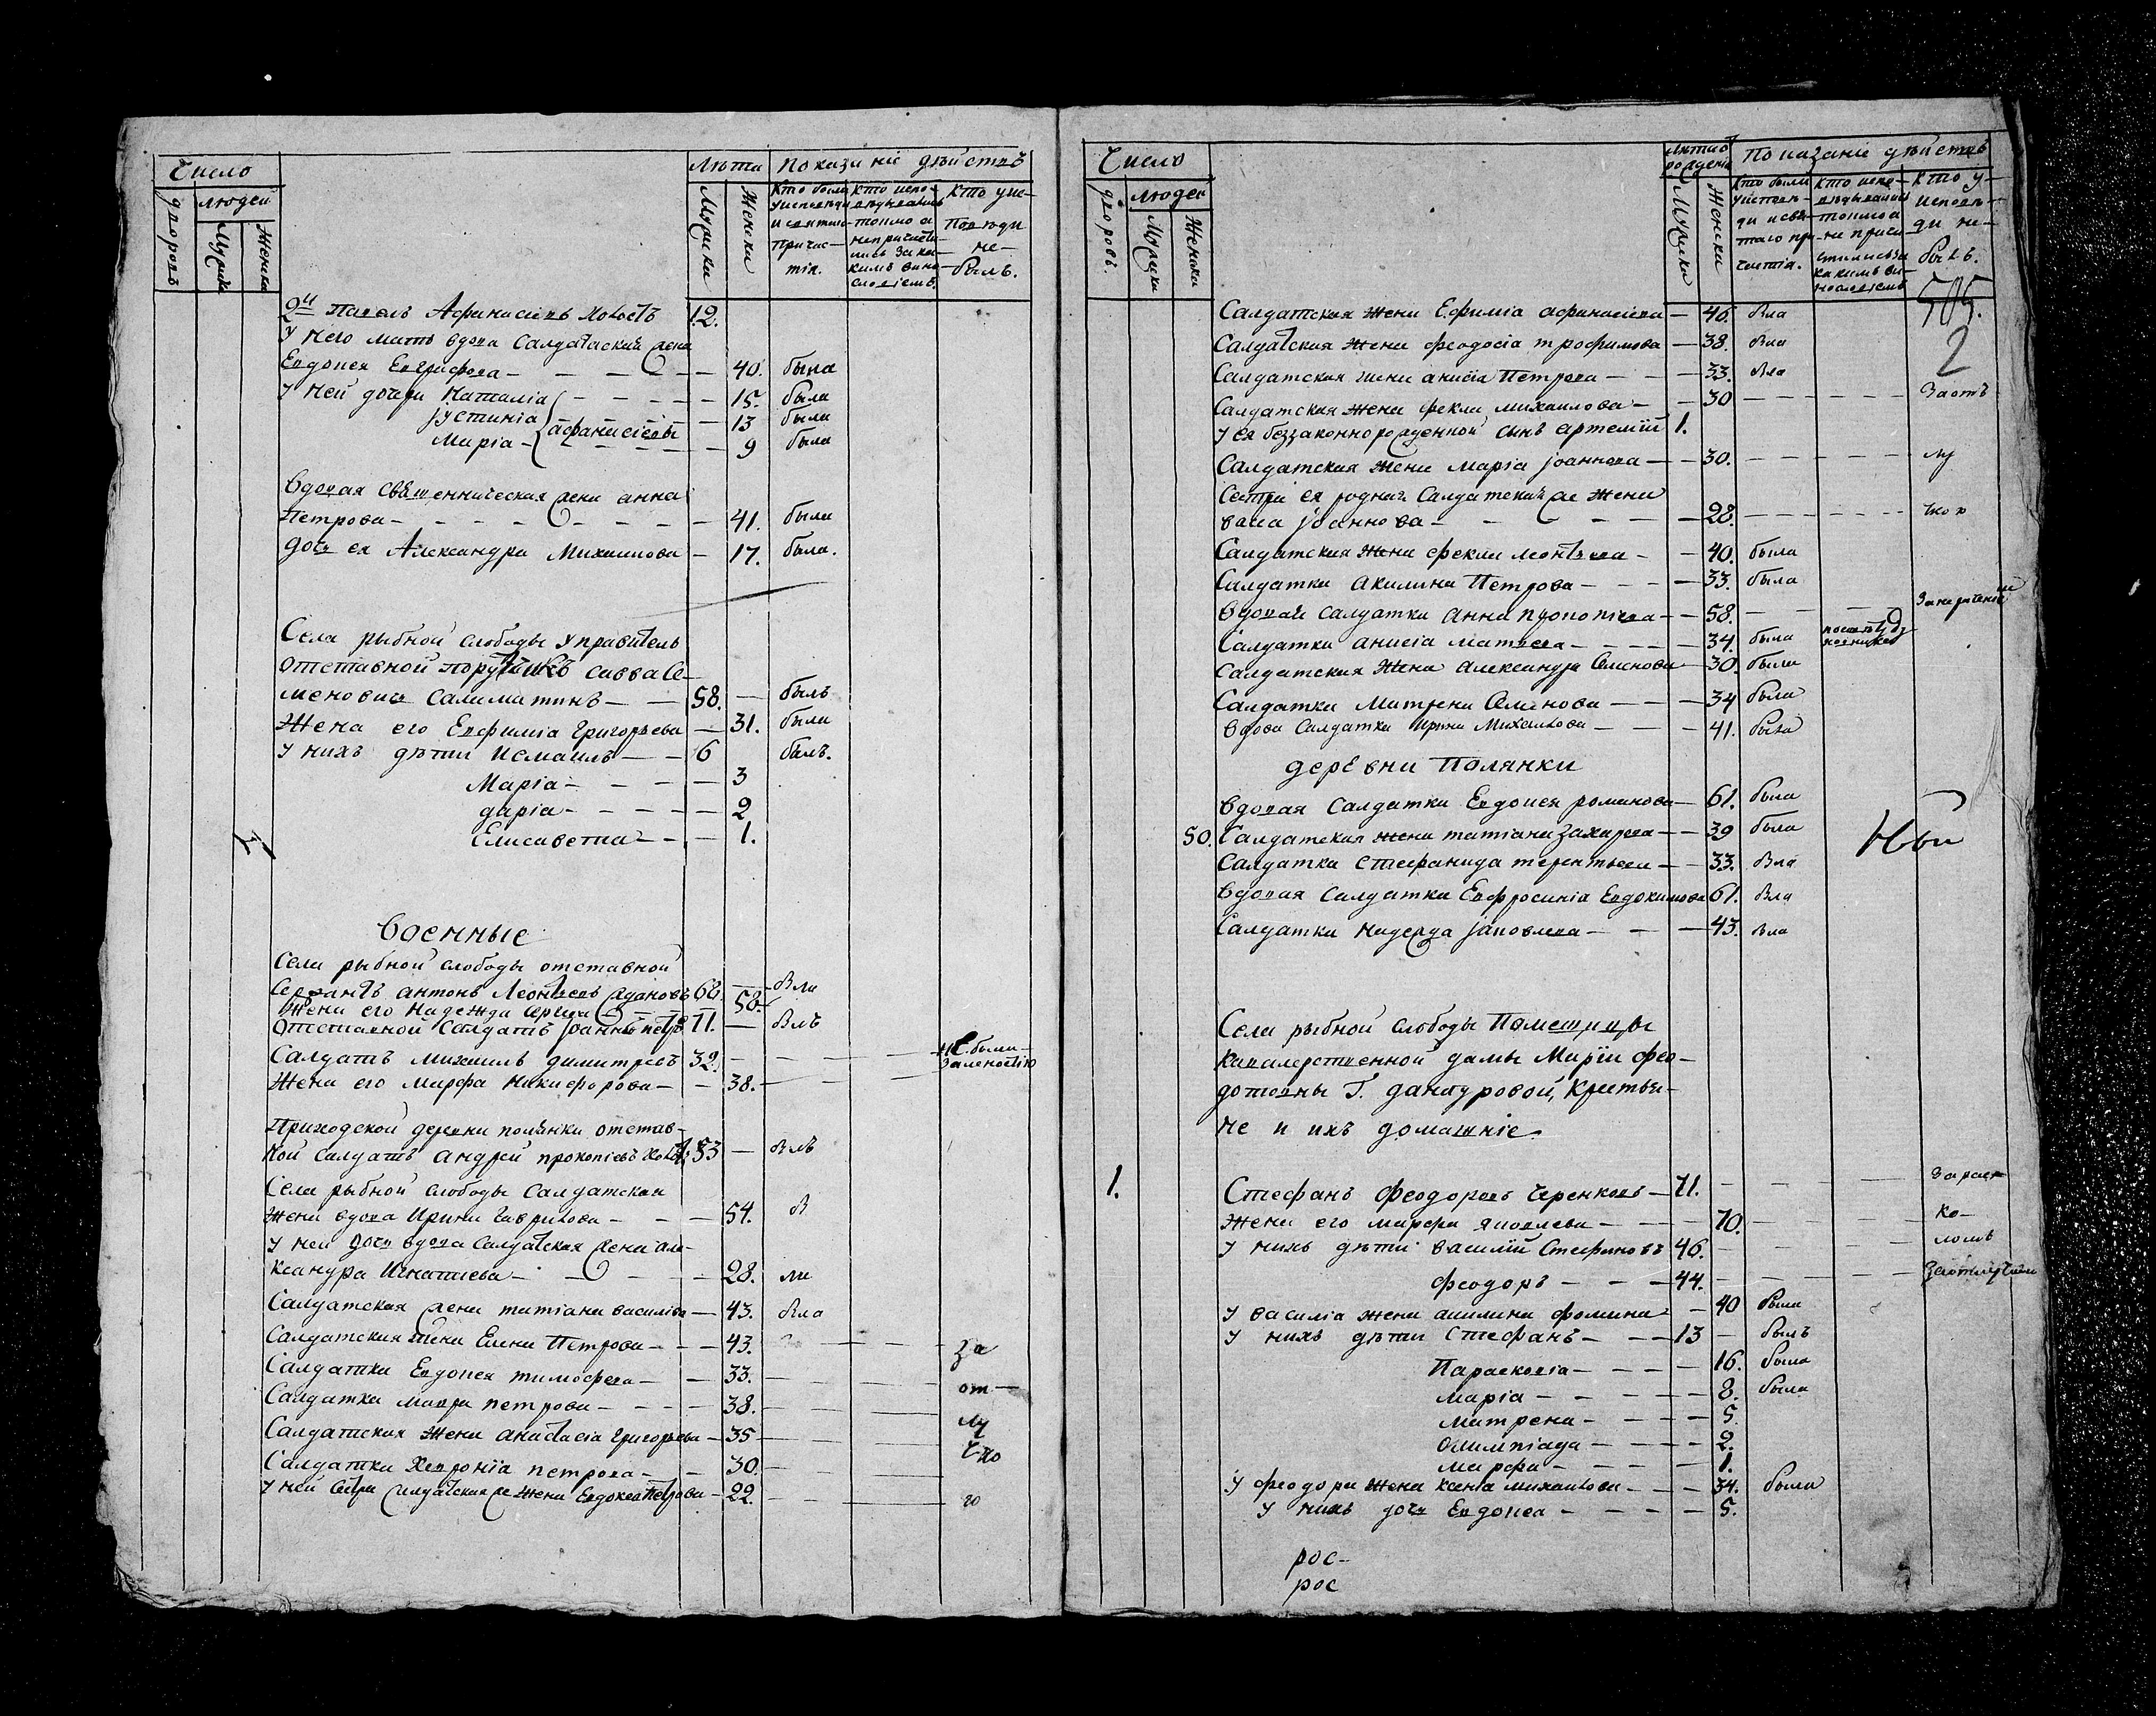 Число
Лѣта
Показаніе дѣйствъ
дворовъ
людей
Мужска
Женска
Мужска
Женска
Кто были
у исповѣди
и святаго
причас-
тія.
кто испо-
вѣдывались
токмо а
не причасти-
лись за ка-
кимъ вино-
словіемъ.
Кто у ис-
повѣди
не-
былъ.
2й Павелъ Афанасіевъ холостъ 12.
У него мать вдова Салдатская жена
Евдокея Евграфова 40. была
У ней дочери Наталіа 15. была
Іустиніа 13 была
Маріа 9 была
афанасіевы
Вдовая священническая жена анна
Петрова 41. была
дочь ея Александра Михаилова 17. была.
Села рыбной слободы управитель
отставной порутчикъ Савва Се-
меновичъ Салиматинъ 58. былъ
Жена его Евфиміа Григорьева 31. была
У нихъ дѣти Исмаилъ 6 былъ.
Маріа 3
даріа 2
Елисавета 1.
Военные
Села рыбной слободы отставной
Сержантъ антонъ Леонтьевъ 68.
жена его Надежда 58.
отставной Салдатъ Іоаннъ петр 71.
Салдатъ михаилъ димитревъ 32. не были
Жена его марфа никифорова 38. за леностію
Приходской деревни полянки отстав-
ной Салдатъ андрей прокопіевъ холос 53
Села рыбной слободы Салдатская
жена вдова Ирина Гаврилова 54. в
У ней дочь вдова Салдатская жена але-
ксандра Игнатіева 28. ла
Салдатская жена татіана василіева 43. вла
Салдатская жена Елена Петрова 43. за
Салдатка Евдокея тимофеева 33. от
Салдатка мавра петрова 38. лу
Салдатская жена анастасіа григорьева 35 ч-
Салдатка Хевроніа петрова 30.
У ней сестра Салдатская же жена Евдокеа Петрова 22. ю
Число
Лѣта отъ
рожденія
Показаніе дѣйствъ
дворовъ.
людей
Мужска
Женска
Мужска
Женска
Кто были
у исповѣ-
ди и свя-
таго при-
частія.
кто испо-
вѣдывались
токмо а
не прича
стились за
какимъ ви-
нословіемъ
Кто у
исповѣ-
ди не-
былъ.
505.
2
Салдатская жена Ефиміа афанасіева 46. вла
Салдатская жена феодосіа трофимова 38. вла
Салдатская жена анисіа Петрова 33. вла
Салдатская жена фекла михаилова 30 За отъ
У ея беззаконнорожденной сынъ артемій 1.
Салдатская жена маріа Іоаннова 30. лу
Сестра ея родная Салдатская же жена
васа Іоаннова 28.
Салдатская жена фекла леонтьева 40. была
Салдатка акилина Петрова 33. была
Вдовая салдатка анна прокопіева 58.
Салдатка анисіа матвеева 34. была
Салдатская жена александра Семенова 30. была
Салдатка Матрена Семенова 34 была
Вдова Салдатка Ирина Михаилова 41. была
деревни Полянки
Вдовая Салдатка Евдокея романова 61. была
50. Салдатская жена татіана захарова 39 была
Салдатка Стефанида терентьева 33. вла
Вдовая Салдатка Евфросиніа Евдокимова 61. вла
Салдатка надежда Іаковлева 43. вла
Села рыбной слободы Помещицы
кавалерственной дамы Маріи фео-
дотовны Г. данауровой, крестья-
не и ихъ домашніе.
1. Стефанъ феодоровъ Черенковъ 71.
жена его марфа яковлева 70. ко-
У нихъ дѣти василій Стефановъ 46.
феодоръ 44.
У василіа жена акилина фомина 40 была
У нихъ дѣти Стефанъ 13 былъ
Параскевіа 16. была
маріа 8. была
матрена 5.
олимпіада 2.
марфа 1.
У феодора жена ксеніа михаилова 34. была
У нихъ дочь Евдокеа 5.
рос-
рос